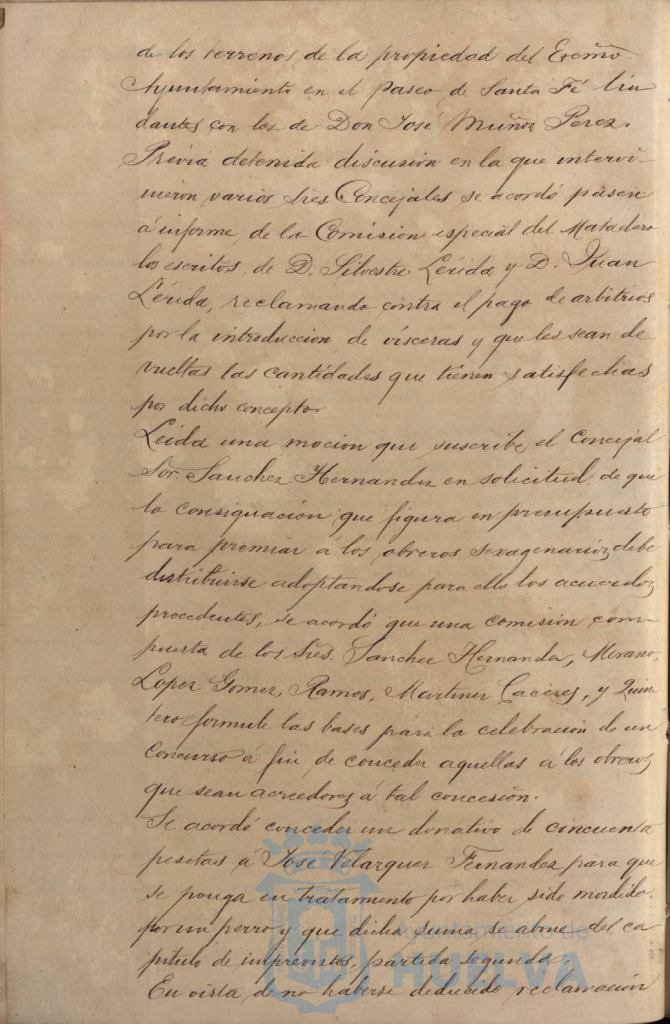 de los terrenos de la propiedad del Excmo.
Ayuntamiento en el paseo de Santa Fé lin
dantes con los de Don José Muñoz Perez.
Prévia detenida discusion en la que intervi-
nieron varios Sres. Concejales se acordó pasen
á informe de la Comision especial del Matadero
los escritos de D. Silvestre Lérida y D. Juan
Lérida, reclamando contra el pago de arbitrios
por la introduccion de vísceras y que les sean de
vueltas las cantidades que tienen satisfechas
por dicho concepto.
Leida una mocion que suscribe el Concejal
Sor. Sanchez Hernandez en solicitud de que
la consignación que figura en presupuesto
para premiar á los obreros sexagenarios debe
distribuirse adoptandose para ello los acuerdos
procedentes, se acordó que una comision com-
puesta de los Sres. Sanchez Hernandez, Morano,
Lopez Gomez, Ramos, Martinez Caceres, y Quin
tero formule las bases para la celebracion de un
Concurso á fin de conceder aquellas á los obreros
que sean acreedores á tal concesión.
Se acordó conceder un donativo de cincuenta
pesetas á José Velazquez Fernandez para que
se ponga en tratamiento por haber sido mordido
por un perro y que dicha suma se abone del ca
pitulo de imprevistos, partida segunda.
En vista de no haberse deducido reclamación
Ayuntamiento de
HUELVA